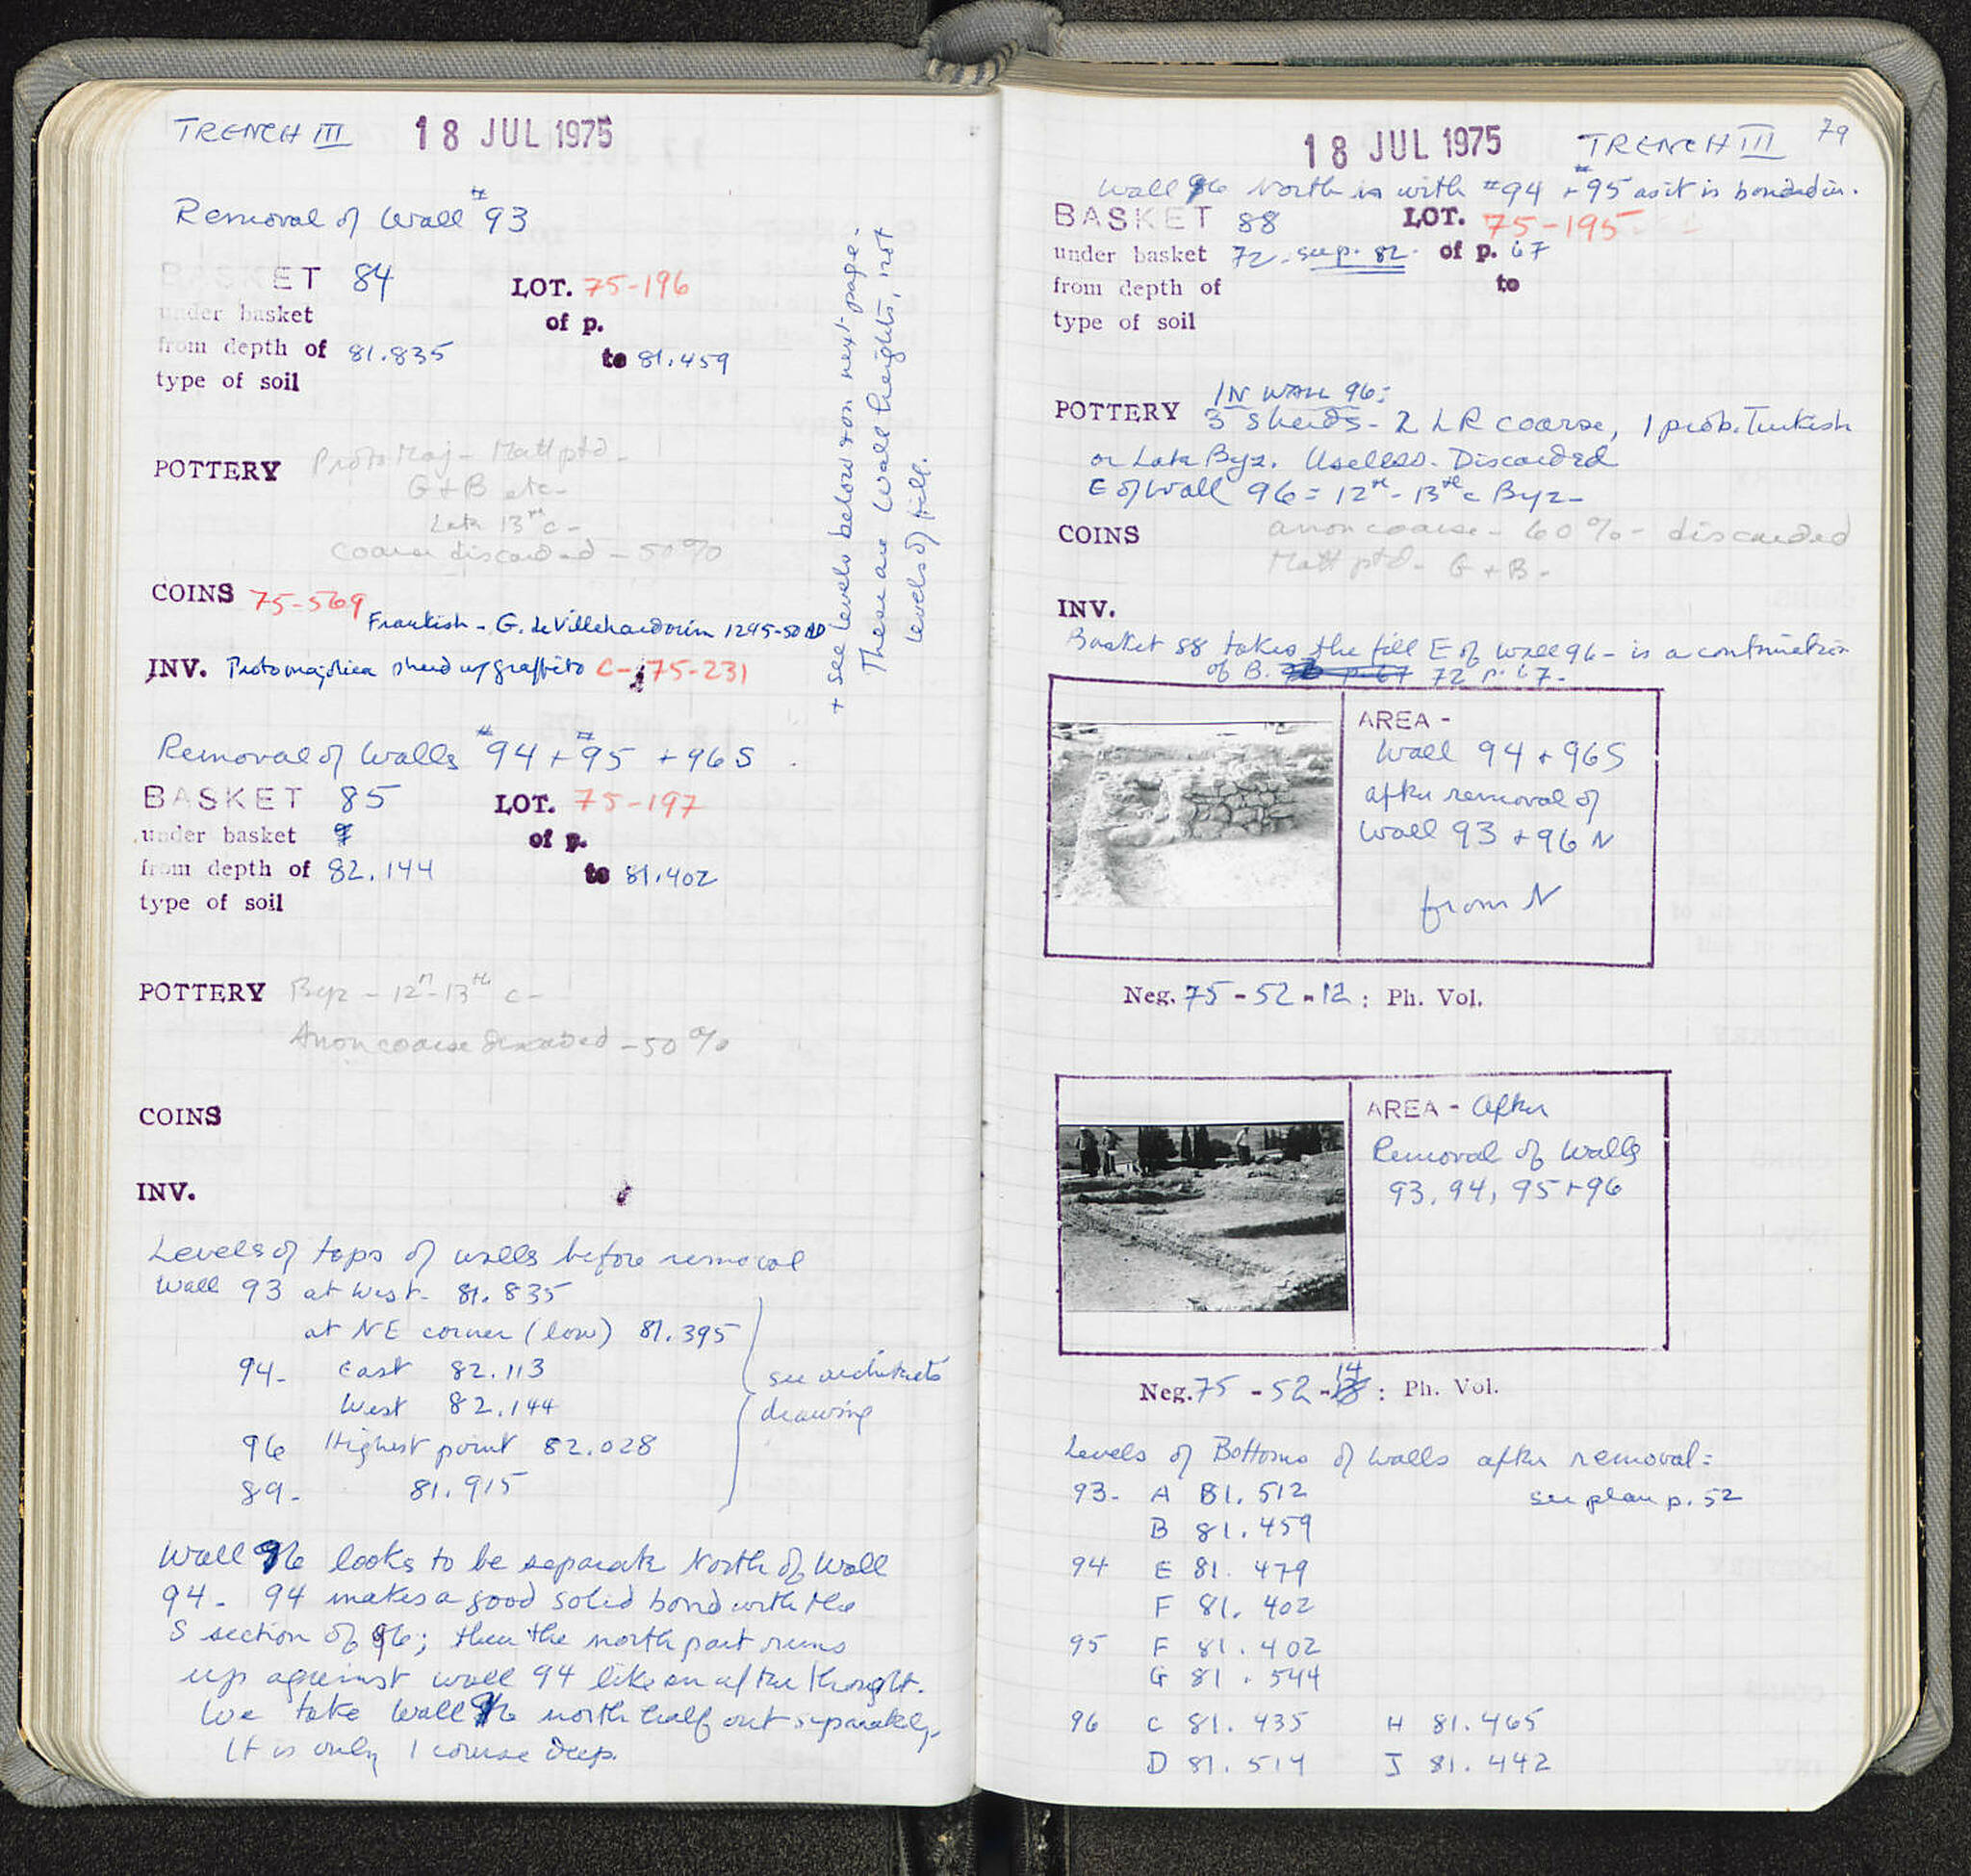 TRENCH III 18 JUL 1975
Removal of Wall #93
BASKET 84 LOT. 75-196
under basket of p.
from depth of 81.835 to 81.459
type of soil
POTTERY Proto Maj - Matt ptd -
G + B etc -
Late 13th c -
Coarse discarded - 50%
COINS 75-569
Frankish - G. de Villehardouin 1245-50 AD
INV. Protomajolica sherd w/ graffito C-75-231
+ see levels below & on next page.
These are wall heights, not
levels of fill.
Removal of Walls #94 + #95 + 96 S
BASKET 85 LOT. 75-197
under basket of p.
from depth of 82.144 to 81.402
type of soil
POTTERY Byz - 12th-13th c -
Anon coarse discarded - 50%
COINS
INV.
Levels of tops of walls before removal
Wall 93 at West - 81.835
at NE corner (low) 81.395
94 - East 82.113 see architect's
West 82.144 drawing
96 Highest point 82.028
89 - 81.915
Wall 96 looks to be separate North of Wall
94 - 94 makes a good solid bond with the
S section of 96; then the north part runs
up against wall 94 like an after thought.
We take Wall 96 north half out separately.
It is only 1 course deep.
18 JUL 1975 TRENCH III 79
Wall 96 North is with #94 + #95 as it is bonded in.
BASKET 88 LOT. 75-195
under basket 72 - see p. 82 - of p. 67
from depth of to
type of soil
IN WALL 96:
POTTERY 3 sherds - 2 LR coarse, 1 prob. Turkish
or Late Byz. Useless. Discarded
E of Wall 96 = 12th - 13th c Byz -
COINS anon coarse - 60% - discarded
Matt ptd - G + B -
INV.
Basket 88 takes the fill E of Wall 96 - is a continuation
of B. 72 p. 67 -
AREA -
Wall 94 + 96S
after removal of
Wall 93 + 96 N
from N
Neg. 75 - 52 - 12 : Ph. Vol.
AREA - After
Removal of Walls
93, 94, 95 + 96
Neg. 75 - 52 - 14 : Ph. Vol.
Levels of Bottoms of walls after removal:
93 - A 81.512 see plan p. 52
B 81.459
94 E 81.479
F 81.402
95 F 81.402
G 81.544
96 C 81.435 H 81.465
D 81.514 J 81.442